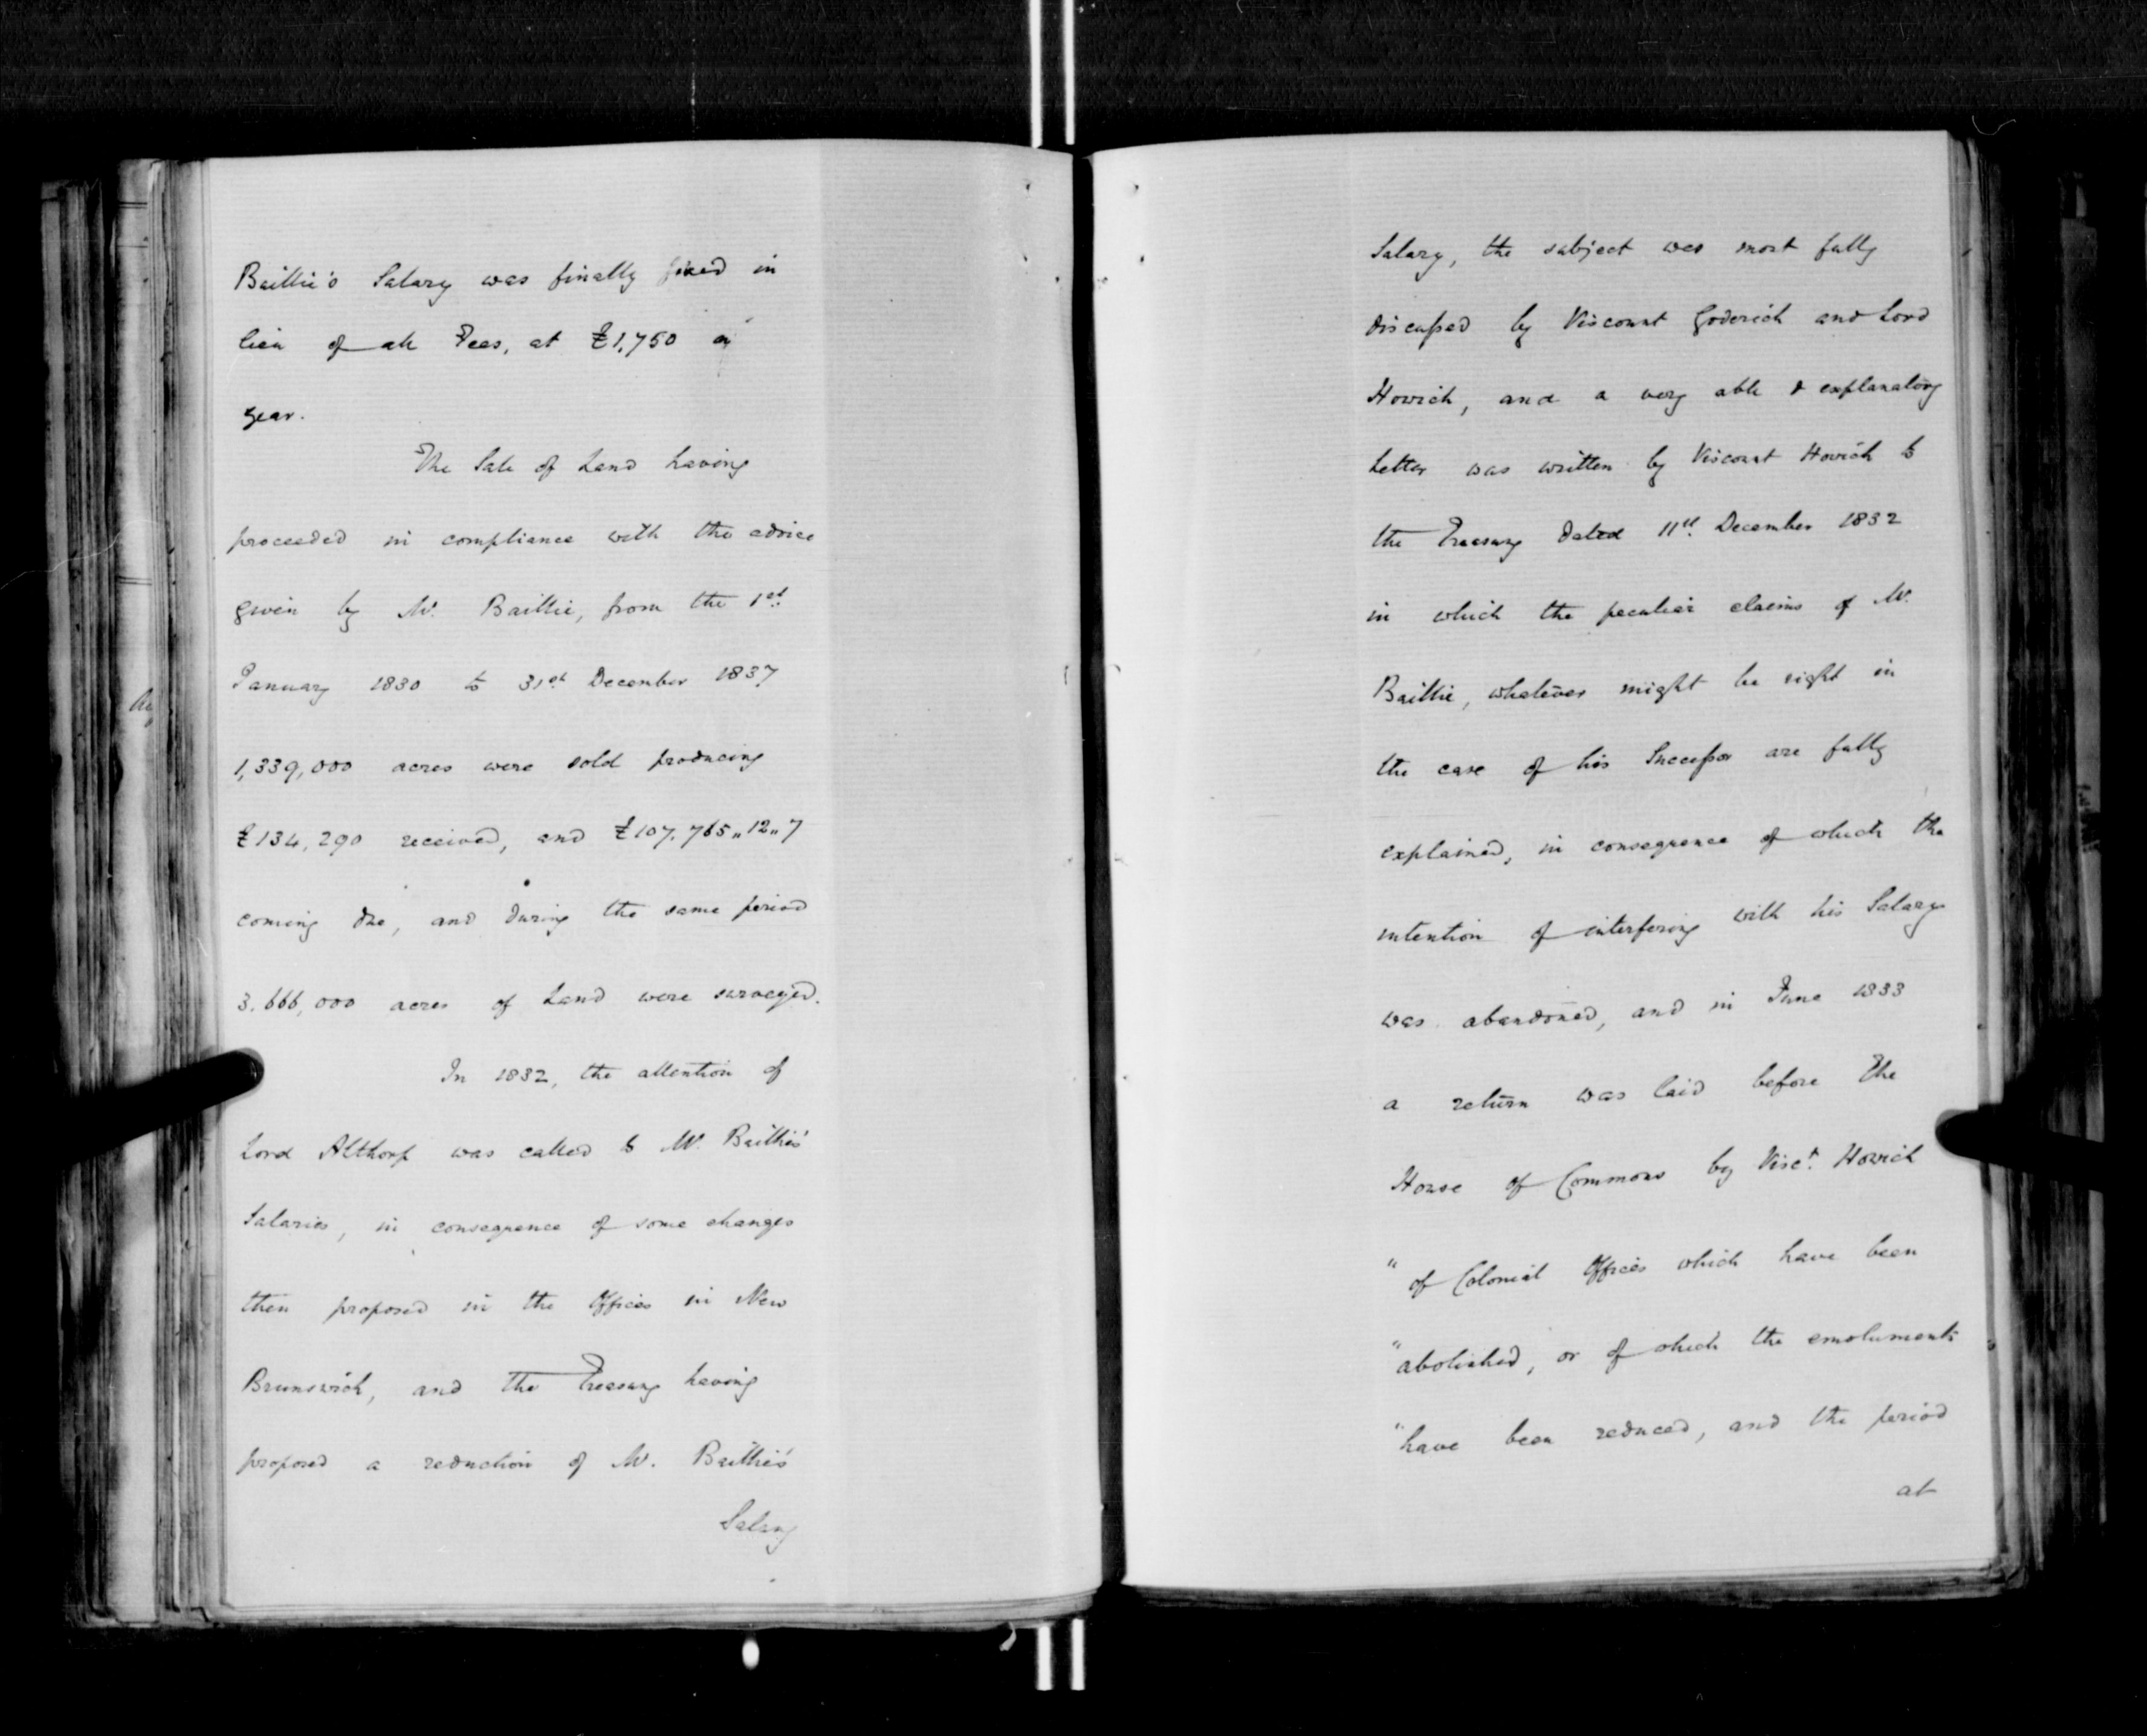 Baillie's Salary was finally fixed in
lieu of all Fees, at £1,750 a
year.
The Sale of Land having
proceeded in compliance with the advice
given by Mr. Baillie, from the 1st
January 1830 to 31st December 1837
1,339,000 acres were sold producing
£134,290 received, and £107,765„12„7
coming due, and during the same period
3,666,000 acres of Land were surveyed.
In 1832, the attention of
Lord Althorp was called to Mr. Baillie's
Salaries, in consequence of some changes
then proposed in the Offices in New
Brunswick, and the Treasury having
proposed a reduction of Mr. Baillie's
Salary
Salary, the subject was most fully
discussed by Viscount Goderich and Lord
Howick, and a very able & explanatory
Letter was written by Viscount Howick to
the Treasury dated 11th December 1832
in which the peculiar claims of Mr.
Baillie, whatever might be right in
the case of his Successor are fully
explained, in consequence of which the
intention of interfering with his Salary
was abandoned, and in June 1833
a return was laid before The
House of Commons by Visct. Howick
"of Colonial Offices which have been
"abolished, or of which the emoluments
"have been reduced, and the period
at